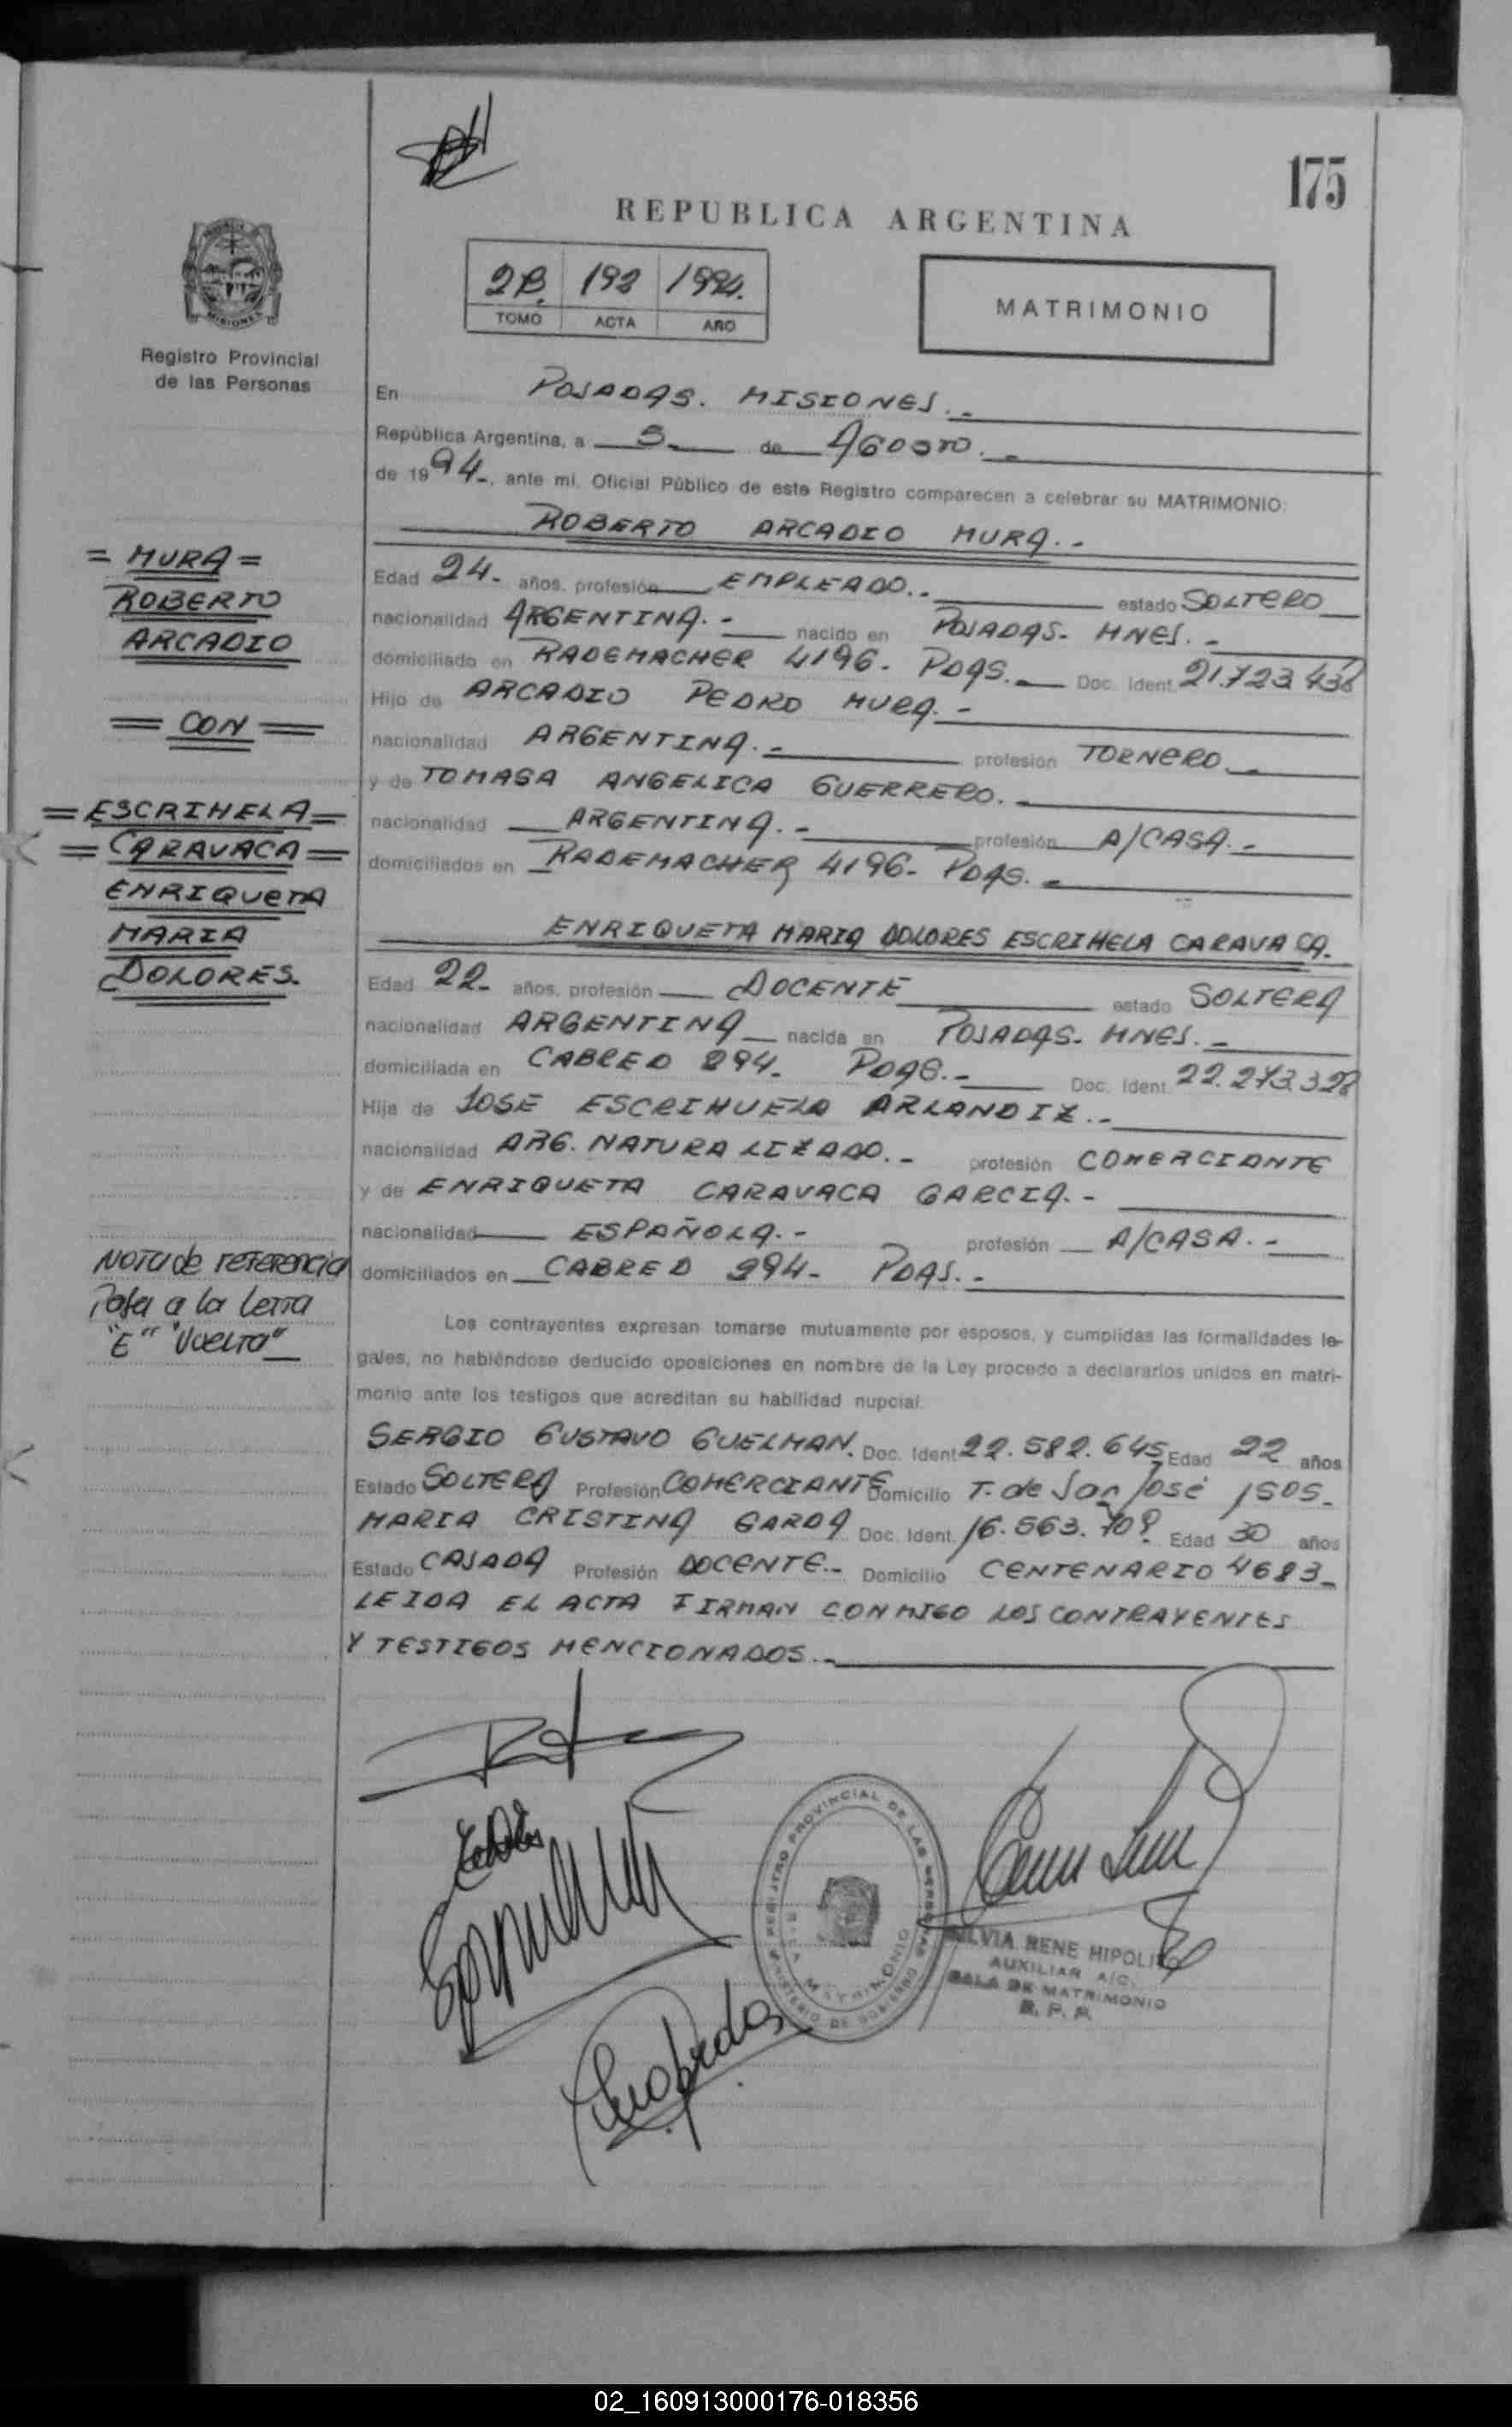 175
REPUBLICA ARGENTINA
2B. 192 1994.
TOMO ACTA AÑO
MATRIMONIO
MISIONES
Registro Provincial
de las Personas
En POSADAS. MISIONES.-
República Argentina, a 5 de AGOSTO.-
de 1994-, ante mi, Oficial Público de este Registro comparecen a celebrar su MATRIMONIO:
ROBERTO ARCADIO MURA.-
Edad 24- años, profesión EMPLEADO.- estado SOLTERO
nacionalidad ARGENTINA.- nacido en POSADAS- MNES.-
domiciliado en RADEMACHER 4196- PDAS.- Doc. Ident. 21.723.438
Hijo de ARCADIO PEDRO MURA.-
nacionalidad ARGENTINA.- profesión TORNERO.-
y de TOMASA ANGELICA GUERRERO.-
nacionalidad ARGENTINA.- profesión A/CASA.-
domiciliados en RADEMACHER 4196- PDAS.-
ENRIQUETA MARIA DOLORES ESCRIHELA CARAVACA.
Edad 22- años, profesión DOCENTE estado SOLTERA
nacionalidad ARGENTINA nacida en POSADAS- MNES.-
domiciliada en CABRED 294- PDAS.- Doc. Ident. 22.273.328
Hija de JOSE ESCRIHUELA ARLANDIZ.-
nacionalidad ARG. NATURALIZADO.- profesión COMERCIANTE
y de ENRIQUETA CARAVACA GARCIA.-
nacionalidad ESPAÑOLA.- profesión A/CASA.-
domiciliados en CABRED 294- PDAS.-
Los contrayentes expresan tomarse mutuamente por esposos, y cumplidas las formalidades le-
gales, no habiéndose deducido oposiciones en nombre de la Ley procedo a declararlos unidos en matri-
monio ante los testigos que acreditan su habilidad nupcial.
SERGIO GUSTAVO GUELMAN. Doc. Ident. 22.582.645 Edad 22 años
Estado SOLTERA Profesión COMERCIANTE Domicilio T. de San José 1505-
MARIA CRISTINA GARDA Doc. Ident. 16.563.709 Edad 30 años
Estado CASADA Profesión DOCENTE.- Domicilio CENTENARIO 4683-
LEIDA EL ACTA FIRMAN CONMIGO LOS CONTRAYENTES
Y TESTIGOS MENCIONADOS.-
= MURA =
ROBERTO
ARCADIO
= CON =
= ESCRIHELA =
= CARAVACA =
ENRIQUETA
MARIA
DOLORES.
Nota de referencia
Pasa a la Letra
"E" "Vuelta"
REGISTRO PROVINCIAL DE LAS PERSONAS
MINISTERIO DE GOBIERNO
MATRIMONIO
SILVIA RENE HIPOLITO
AUXILIAR A/C.
SALA DE MATRIMONIO
R. P. P.
02_160913000176-018356